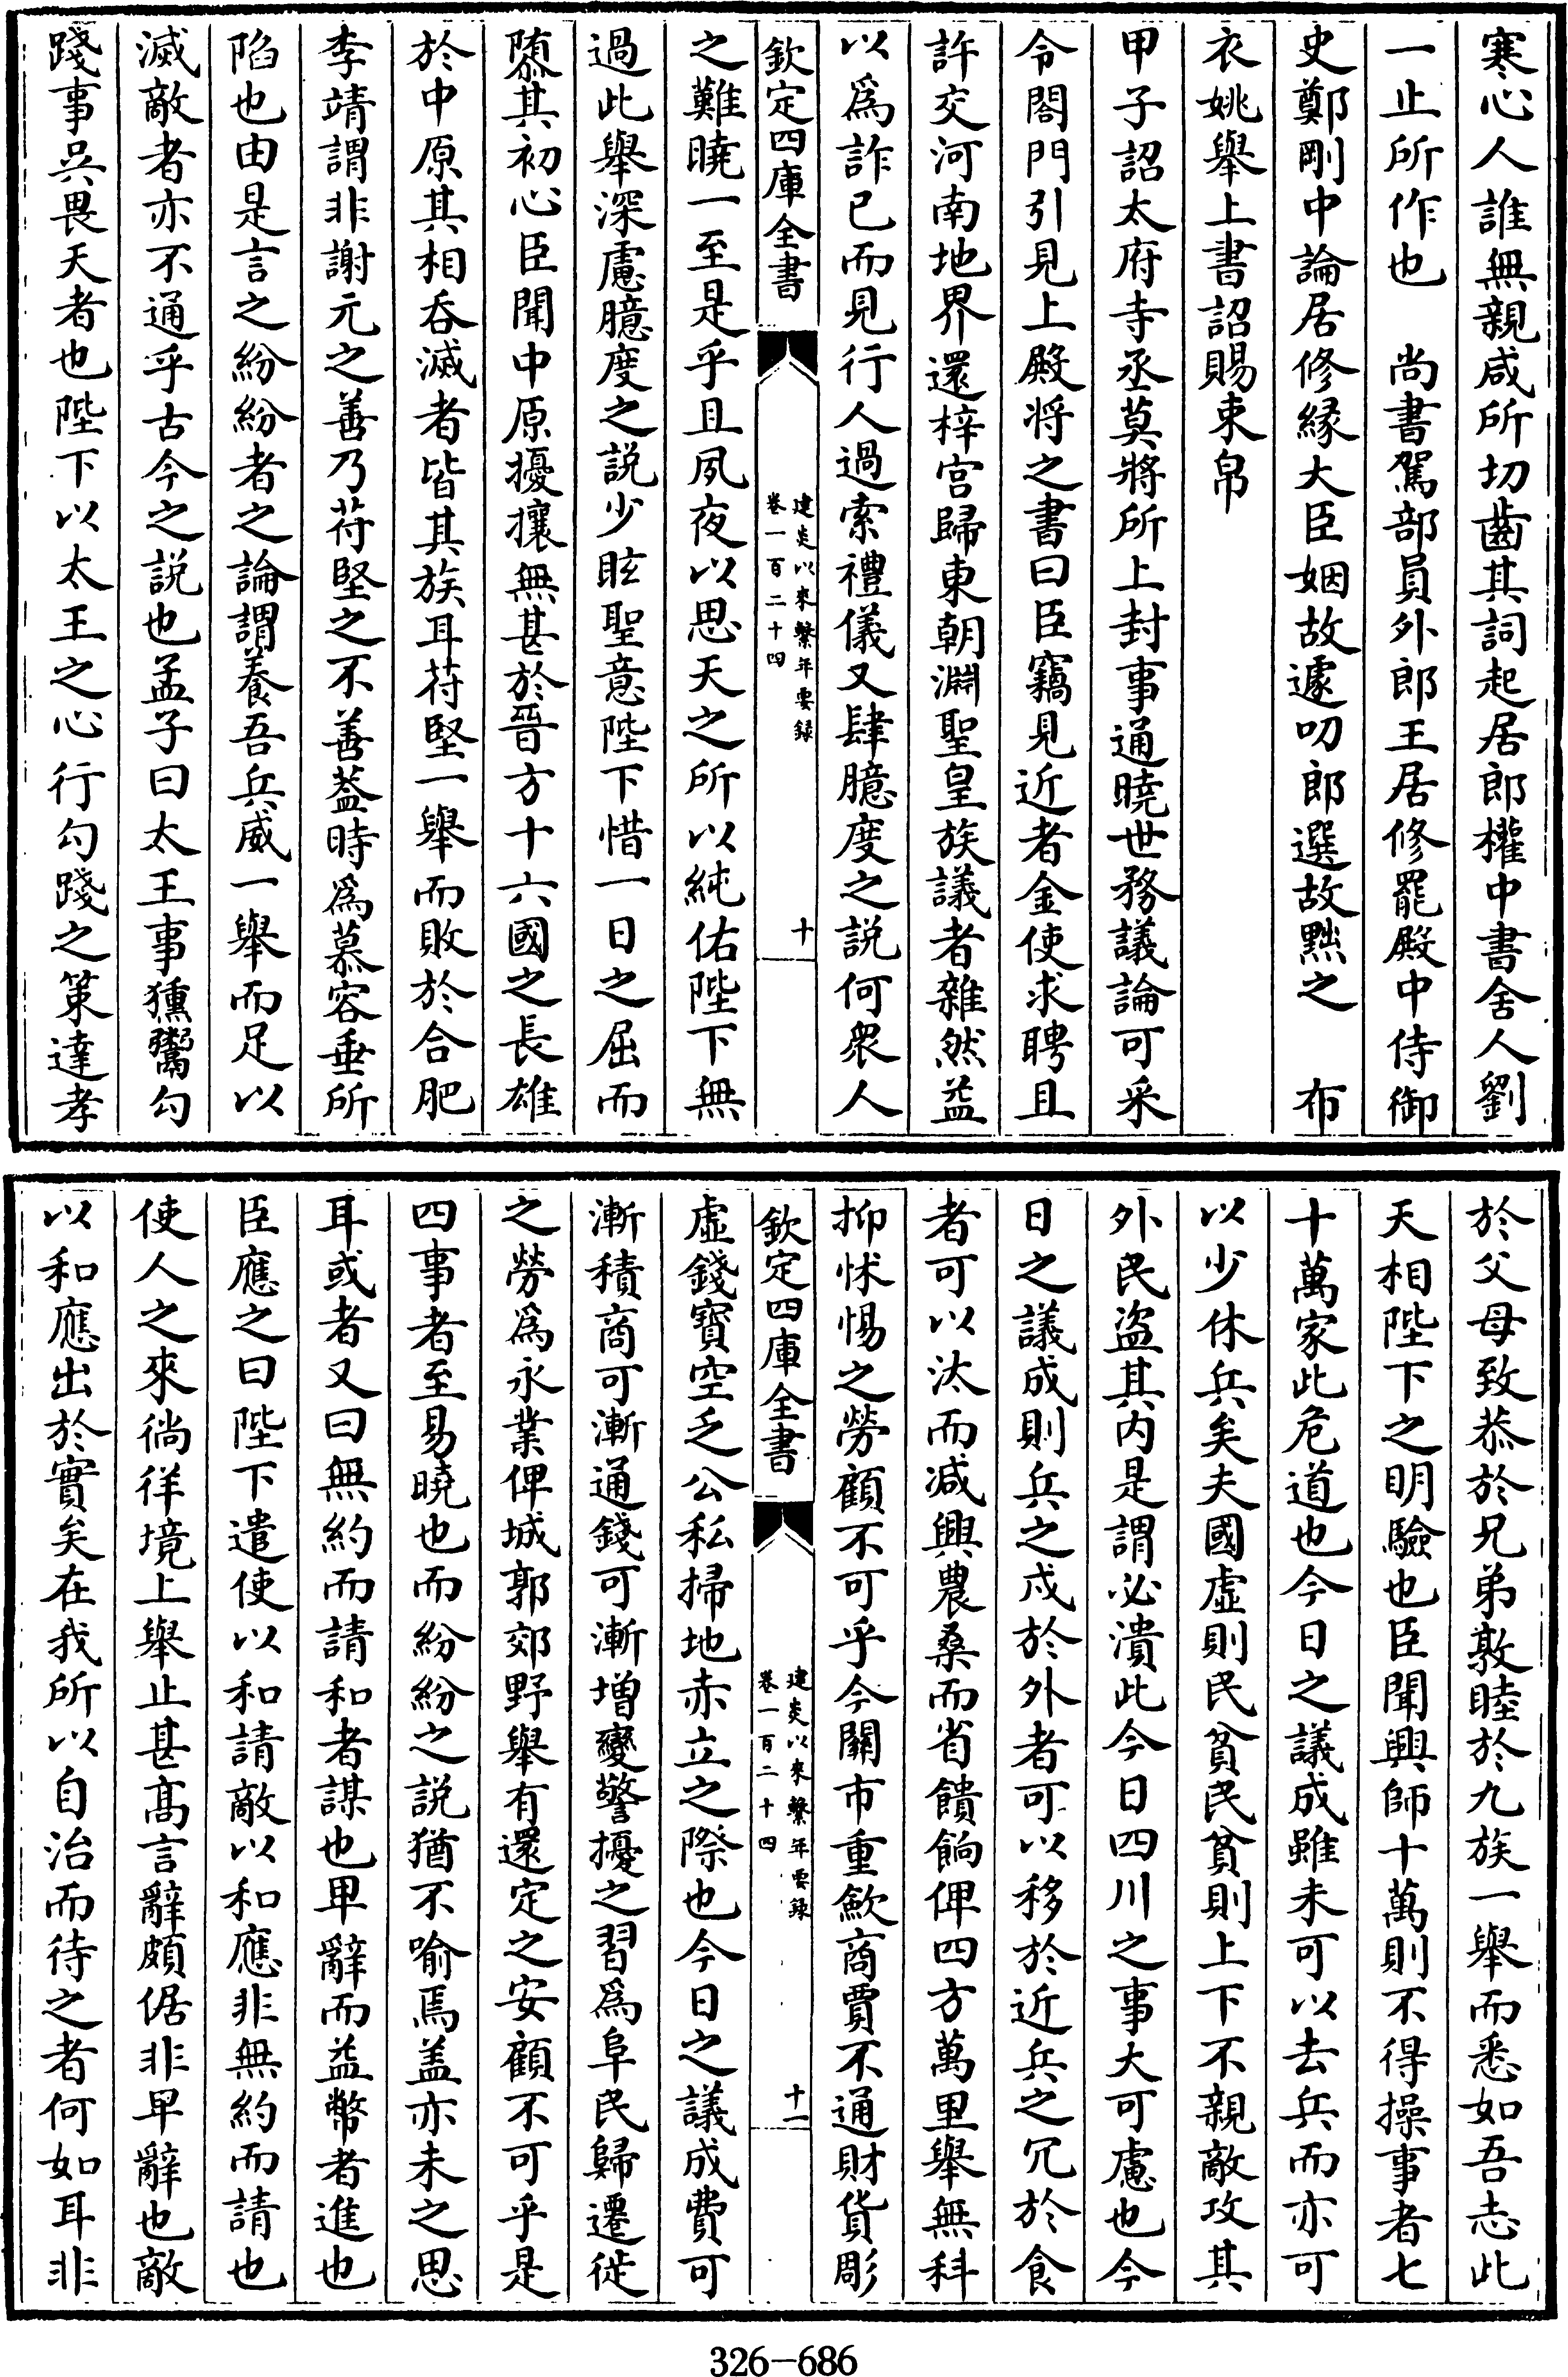 寒心人誰無親咸所切齒其詞起居郎權中書舍人劉
一止所作也　尚書駕部員外郎王居修罷殿中侍御
史鄭剛中論居修緣大臣姻故遽叨郎選故黜之　布
衣姚舉上書詔賜束帛
甲子詔太府寺丞莫將所上封事通曉世務議論可采
令閤門引見上殿将之書曰臣竊見近者金使求聘且
許交河南地界還梓宮歸東朝淵聖皇族議者雜然益
以爲詐已而見行人過索禮儀又肆臆度之説何衆人
欽定四庫全書
建炎以來繫年要録
卷一百二十四
十
之難曉一至是乎且夙夜以思天之所以純佑陛下無
過此舉深慮臆度之説少眩聖意陛下惜一日之屈而
隳其初心臣聞中原擾攘無甚於晉方十六國之長雄
於中原其相呑滅者皆其族耳苻堅一舉而敗於合肥
李靖謂非謝元之善乃苻堅之不善葢時爲慕容垂所
陷也由是言之紛紛者之論謂養吾兵威一舉而足以
滅敵者亦不通乎古今之説也孟子曰太王事獯鬻勾
踐事吳畏天者也陛下以太王之心行勾踐之策達孝
於父母致恭於兄弟敦睦於九族一舉而悉如吾志此
天相陛下之明驗也臣聞興師十萬則不得操事者七
十萬家此危道也今日之議成雖未可以去兵而亦可
以少休兵矣夫國虛則民貧民貧則上下不親敵攻其
外民盜其内是謂必潰此今日四川之事大可慮也今
日之議成則兵之戍於外者可以移於近兵之冗於食
者可以汰而減興農桑而省饋餉俾四方萬里舉無科
抑怵惕之勞顧不可乎今關市重斂商賈不通財貨彫
欽定四庫全書
建炎以來繫年要録
卷一百二十四
十一
虛錢寳空乏公私掃地赤立之際也今日之議成費可
漸積商可漸通錢可漸增變警擾之習爲阜民歸遷徙
之勞爲永業俾城郭郊野舉有還定之安顧不可乎是
四事者至易曉也而紛紛之説猶不喻焉盖亦未之思
耳或者又曰無約而請和者謀也卑辭而益幣者進也
臣應之曰陛下遣使以和請敵以和應非無約而請也
使人之來徜徉境上舉止甚髙言辭頗倨非卑辭也敵
以和應出於實矣在我所以自治而待之者何如耳非
326—686